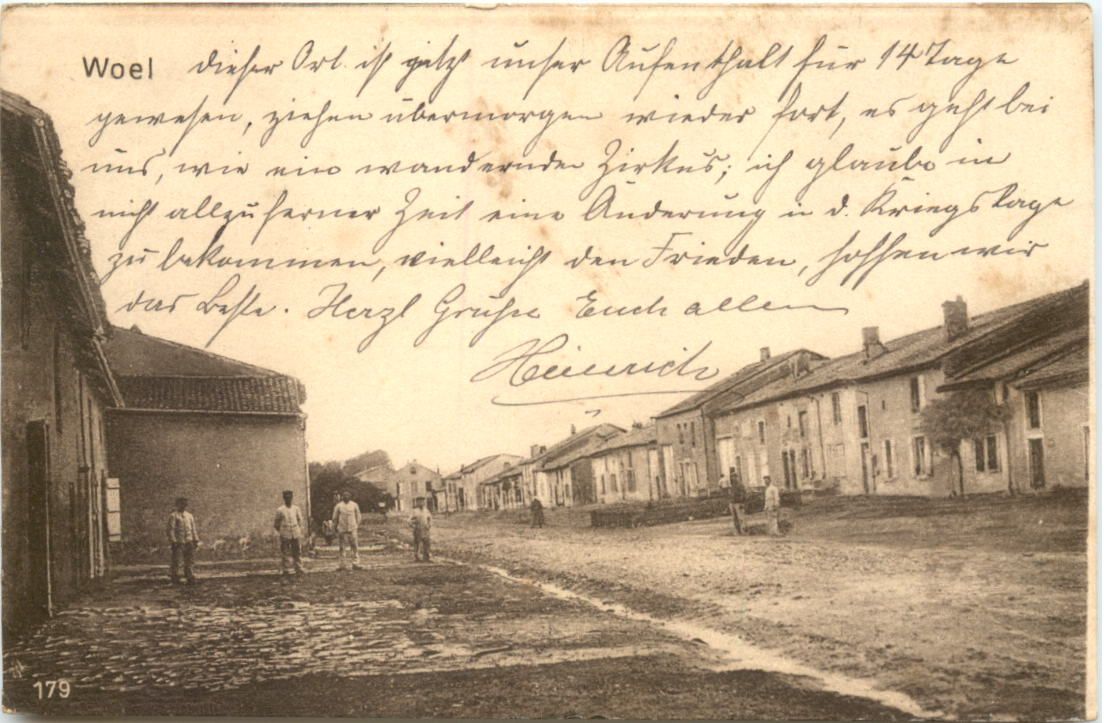 Woel dieser Ort ist jetzt unser Aufenthalt für 14 Tage
gewesen, ziehen übermorgen wieder fort, es geht bei
uns, wie ein wandernder Zirkus; ich glaube in
nicht allzuferner Zeit eine Änderung in d. Kriegslage
zu bekommen, vielleicht den Frieden, hoffen wir
das Beste. Herzl Grüße Euch allen
Heinrich
179